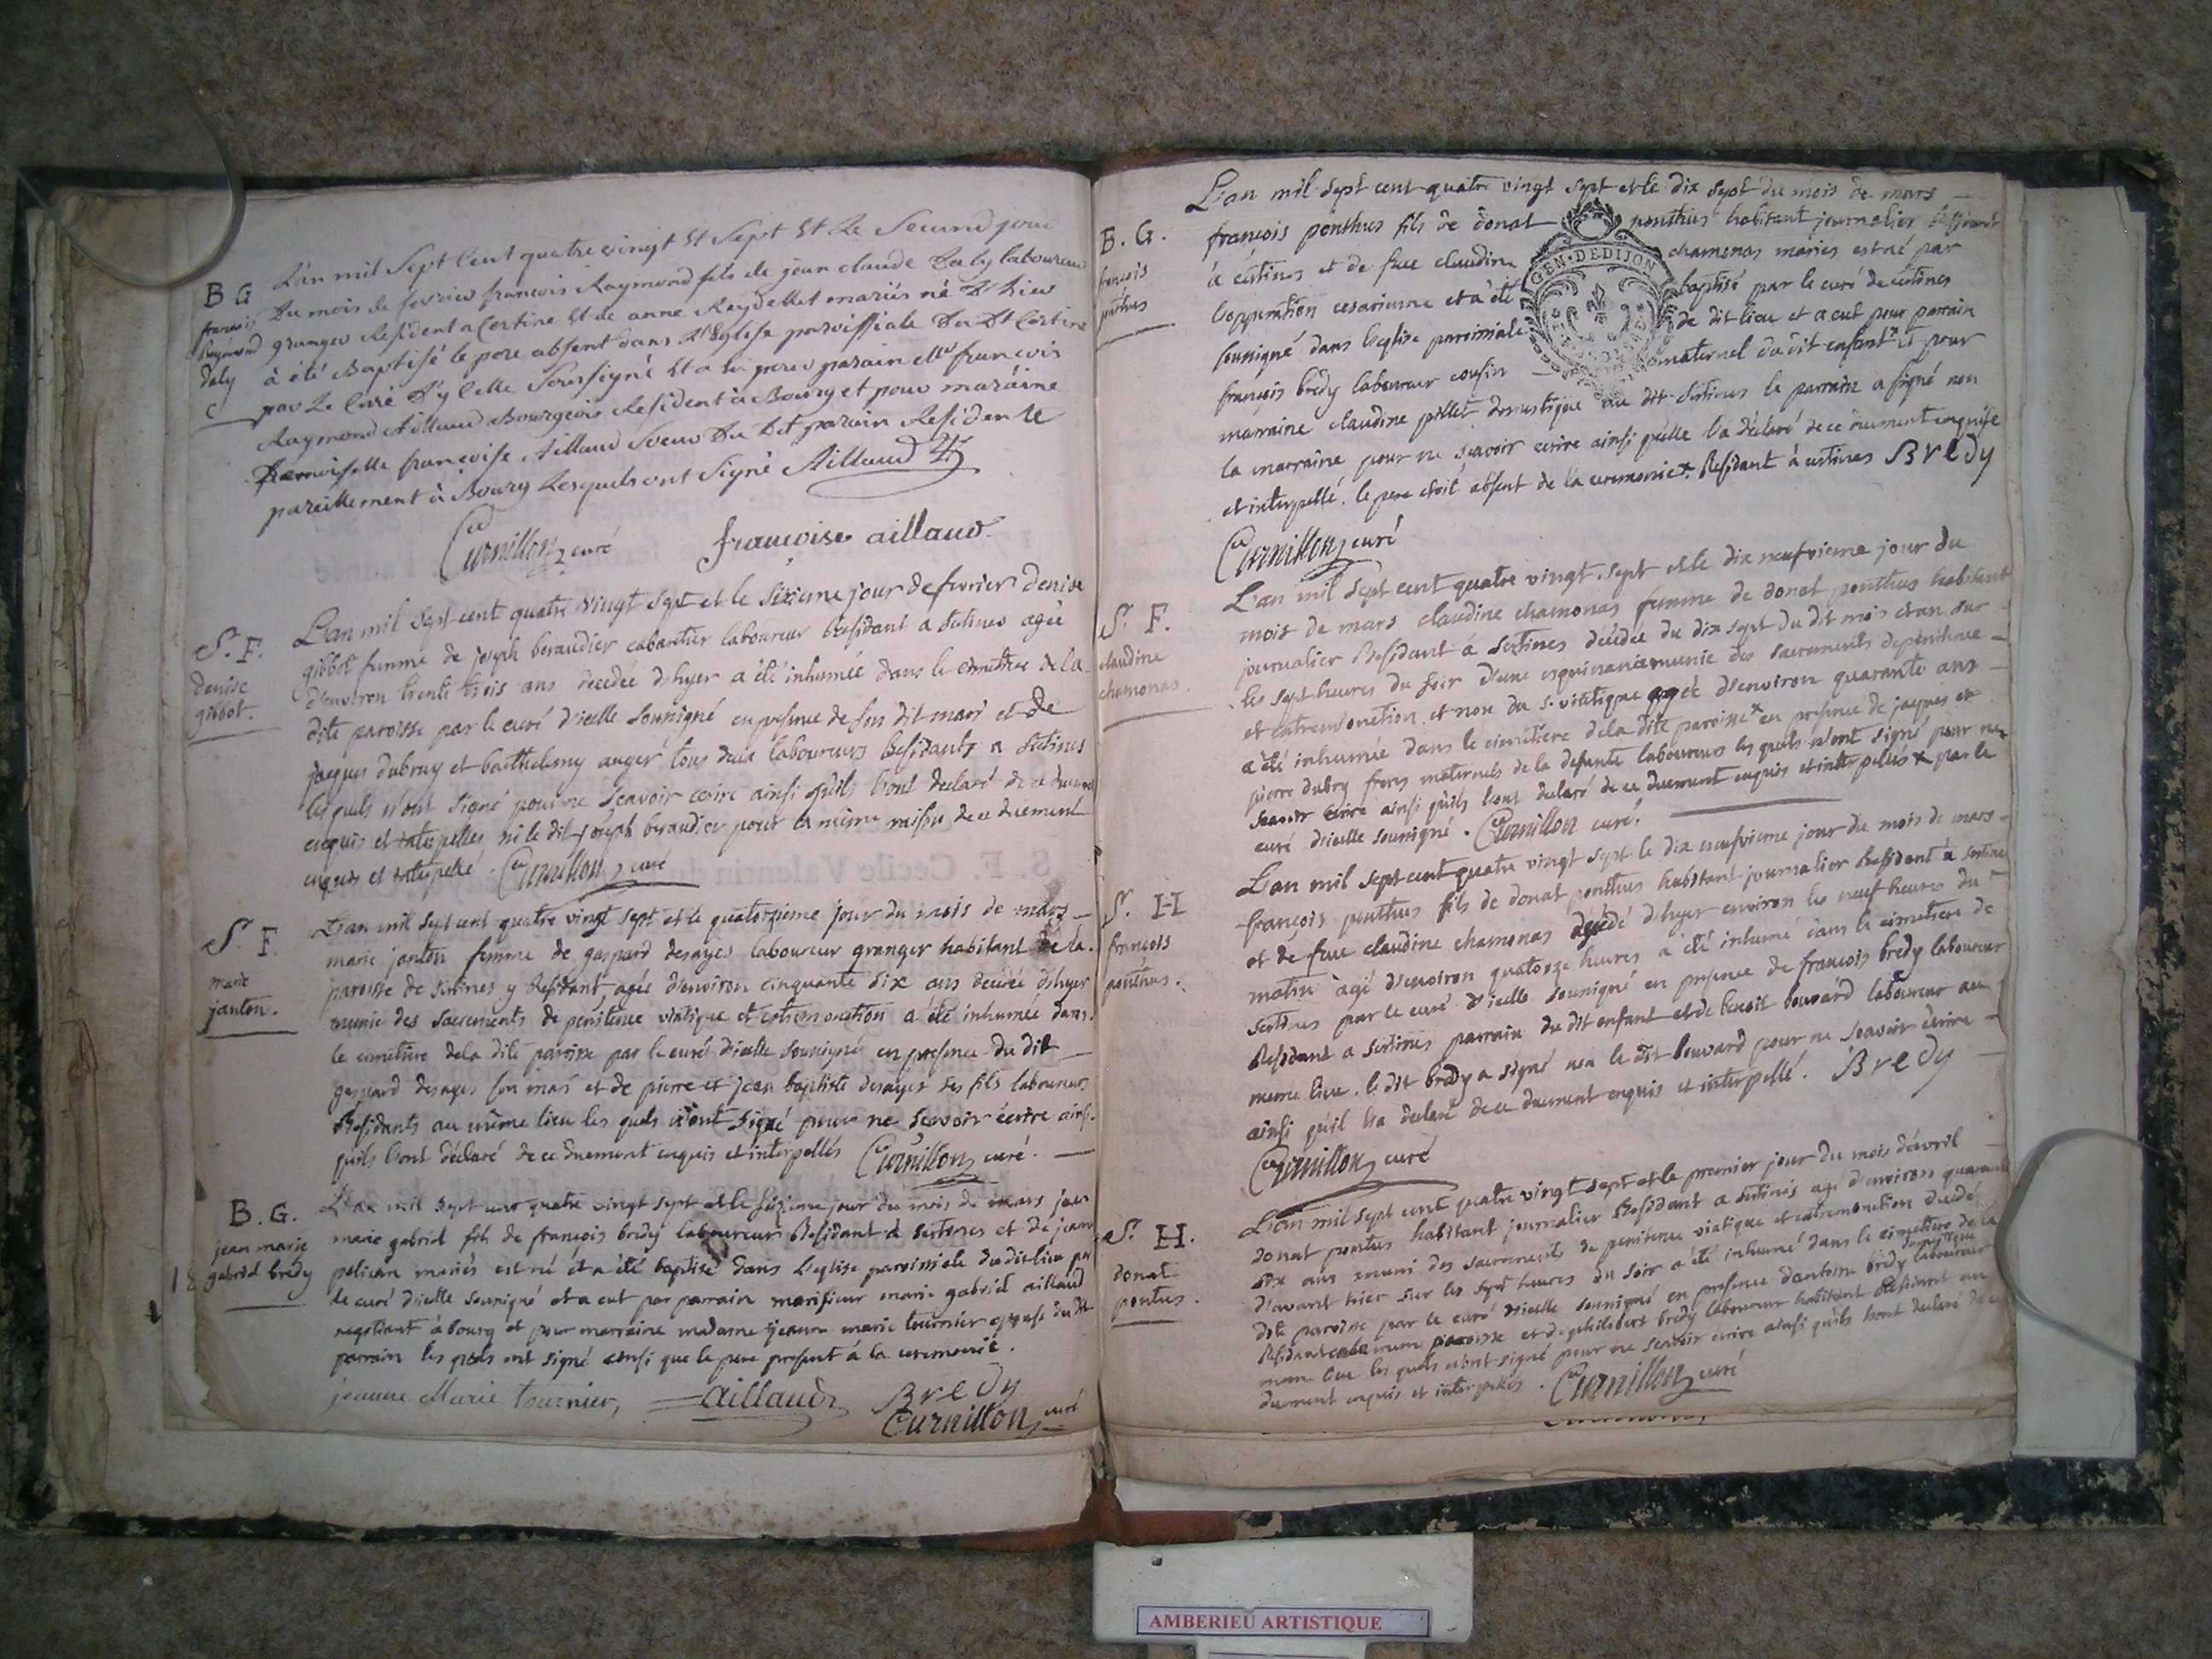 B G
françois
Raymond
daly
L'an mil Sept Cent quatre vingt et Sept et Le Second jour
Du mois de fevrier francois Raymond fils de jean claude Daly laboureur
granger Resident a Certine et de anne Reydellet mariés né D'hier
à été Baptisé le pere absent dans L'Eglise paroissiale Du Dt Certine
par Le Curé D'y celle Soussigné et a eu pour parain Mr francois
Raymond Aillaud Bourgeois Resident à Bourg et pour maraine
Demoiselle francoise Aillaud Soeur Du Dit parain Residente
pareillement à Bourg Lesquels ont Signé Aillaud
Curnillon curé francoise aillaud
S. F.
denise
gibbot.
L'an mil sept cent quatre vingt sept et le sixieme jour de fevrier denise
gibbot femme de joseph beraudier cabaretier laboureur Residant a Sertines agée
d'environ trente trois ans decedée d'hyer a été inhumée dans le cimetiere de la
dite paroisse par le curé d'icelle soussigné en presence de son dit mari et de
jacques dubruy et barthelemy auger tous deux laboureurs Residants a Sertines
les quels n'ont signé pour ne sçavoir ecrire ainsi qu'ils l'ont declaré de ce duement
enquis et interpellés ni le dit joseph beraudier pour la même raison de ce duement
enquis et interpellé. Curnillon curé
S. F.
marie
janton.
L'an mil sept cent quatre vingt sept et le quatorzieme jour du mois de mars
marie janton femme de gaspard desayes laboureur granger habitant de la
paroisse de Sertines y Residant, agée d'environ cinquante six ans decedée d'hyer
munie des sacrements de penitence viatique et extremonction a été inhumée dans
le cimetiere de la dite paroisse par le curé d'icelle soussigné en presence du dit
gaspard desayes son mari et de pierre et jean baptiste desayes ses fils laboureurs
Residants au même lieu les quels n'ont signé pour ne sçavoir écrire ainsi
qu'ils l'ont déclaré de ce duement enquis et interpellés Curnillon curé.
B. G.
jean marie
gabriel bredy
18
L'an mil sept cent quatre vingt sept et le seizieme jour du mois de mars jean
marie gabriel fils de françois bredy laboureur Residant à Sertines et de jeanne
pelican mariés est né et a été baptisé dans l'eglise paroissiale du dit lieu par
le curé d'icelle soussigné et a eut par parrain monsieur marie gabriel aillaud
negotiant à bourg et pour marraine madame jeanne marie tournier epouse du dit
parrain les quels ont signé ainsi que le pere present à la ceremonie.
jeanne Marie tournier, Aillaud Bredy
Curnillon curé
B. G.
françois
ponthus
L'an mil sept cent quatre vingt sept et le dix sept du mois de mars
françois ponthus fils de donat ponthus habitant journalier Residant
à Certines et de feue claudine chamonas mariés est né par
l'opperation cesarienne et a été baptisé par le curé de certines
soussigné dans l'eglise paroissiale de dit lieu et a eut pour parrain
françois bredy laboureur cousin maternel du dit enfant* et pour
marraine claudine pillet domestique au dit Sertines le parrain a signé non
la marraine pour ne sçavoir ecrire ainsi quelle l'a déclaré de ce duement enquise
et interpellé. le pere etoit absent de la ceremonie * Residant à certines Bredy
Curnillon curé
GEN. DE DIJON
S. F.
claudine
chamonas.
L'an mil sept cent quatre vingt sept et le dix neufvieme jour du
mois de mars claudine chamonas femme de donat ponthus habitant
journalier Residant á Sertines décédée du dix sept du dit mois et an sur
les sept heures du soir d'une esquinancie munie des sacrements de penitence
et extremonction et non du s. viatique agée d'environ quarante ans
a été inhumée dans le cimetiere de la dite paroisse* en presence de jacques et
pierre dubry freres maternels de la defunte laboureurs les quels n'ont signé pour ne
sçavoir ecrire ainsi qu'ils l'ont declaré de ce duement enquis et interpellés * par le
curé d'icelle soussigné. Curnillon curé.
S. H
françois
ponthus.
L'an mil sept cent quatre vingt sept le dix neufvieme jour du mois de mars
françois ponthus fils de donat ponthus habitant journalier Residant à Sertines
et de feue claudine chamonas décédé d'hyer environ les neuf heures du
matin àgé d'environ quatorze heures a été inhumé dans le cimetiere de
Sertines par le curé d'icelle soussigné en presence de françois bredy laboureur
Residant a Sertines parrain du dit enfant et de benoit bouvard laboureur au
meme lieu. le dit bredy a signé non le dit bouvard pour ne sçavoir ecrire
ainsi qu'il l'a declaré de ce duement enquis et interpellé. Bredy
Curnillon curé
S. H.
donat
pontus.
L'an mil sept cent quatre vingt sept et le premier jour du mois d'avril
donat pontus habitant journalier Residant a Sertines agé d'environ quarante
six ans muni des sacrements de penitence viatique et extremonction decédé
d'avant hier sur les sept heures du soir a été inhumé dans le cimetiere de la
dite paroisse par le curé d'icelle soussigné en presence d'antoine bredy domestique
Residant meme paroisse et de philibert bredy laboureur habitant Residant au
meme lieu les quels n'ont signé pour ne sçavoir ecrire ainsi qu'ils l'ont declaré de ce
duement enquis et interpellés. Curnillon curé
AMBERIEU ARTISTIQUE